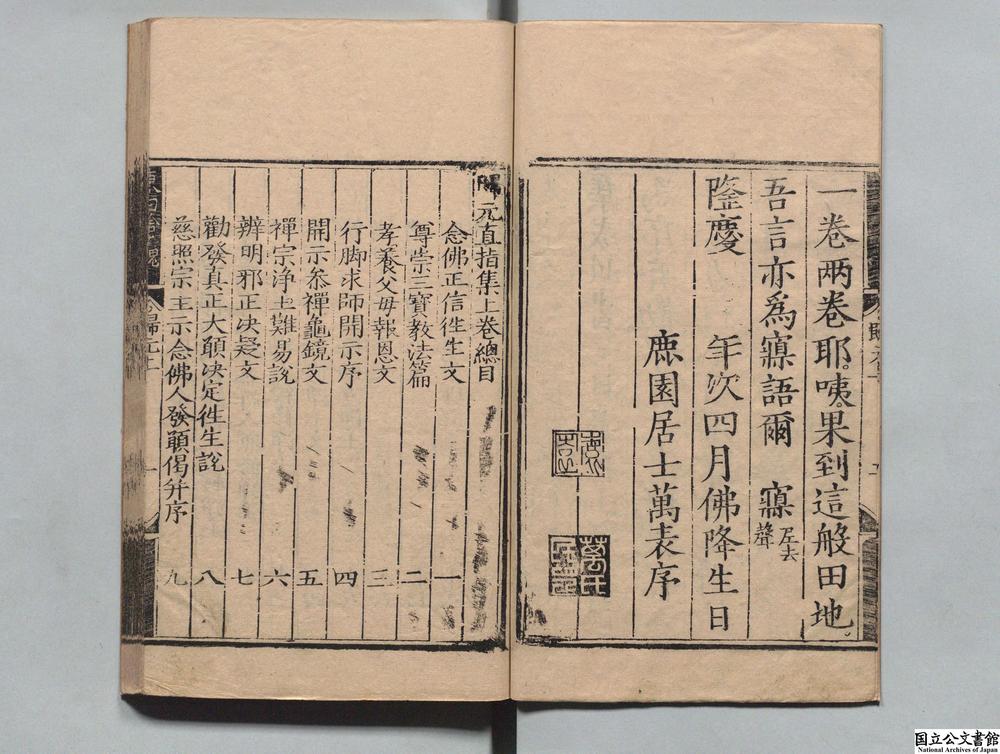 一卷兩卷耶咦果到這般田地
吾言亦爲寱語爾 寱 去聲
隆慶 年次四月佛降生日
鹿園居士萬表序
萬氏
歸元直指集上卷總目
念佛正信徃生文 一
尊崇三寶教法篇 二
孝養父母報恩文 三
行脚求師開示序 四
開示參禪龜鏡文 五
禪宗淨土難易說 六
辨明邪正决疑文 七
勸發真正大願决定徃生說 八
慈照宗主示念佛人發願偈并序 九
歸元上
一
国立公文書館
National Archives of Japan